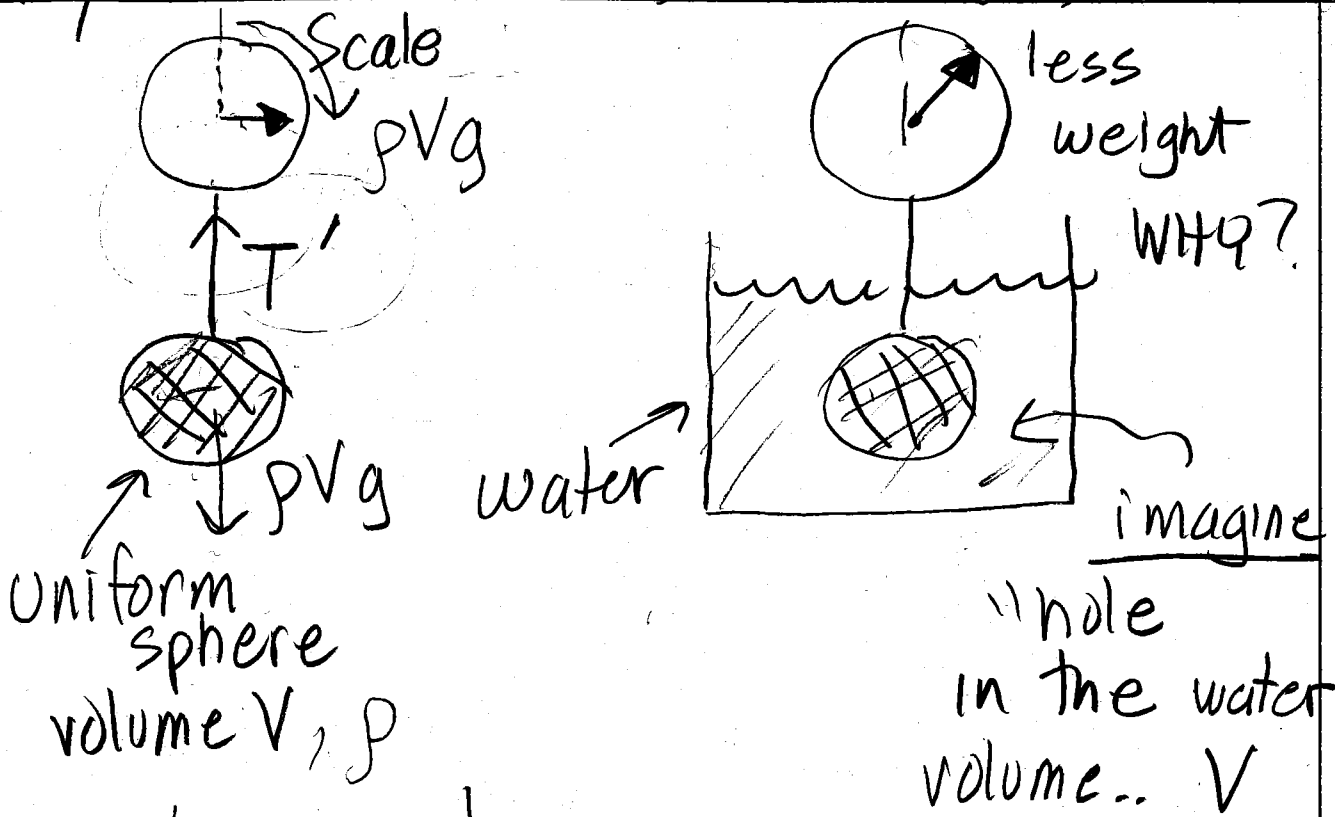 Scale
ρVg
T'
ρVg
uniform
sphere
volume V, ρ
less
weight
WHY?
water
imagine
"hole
in the water
volume.. V